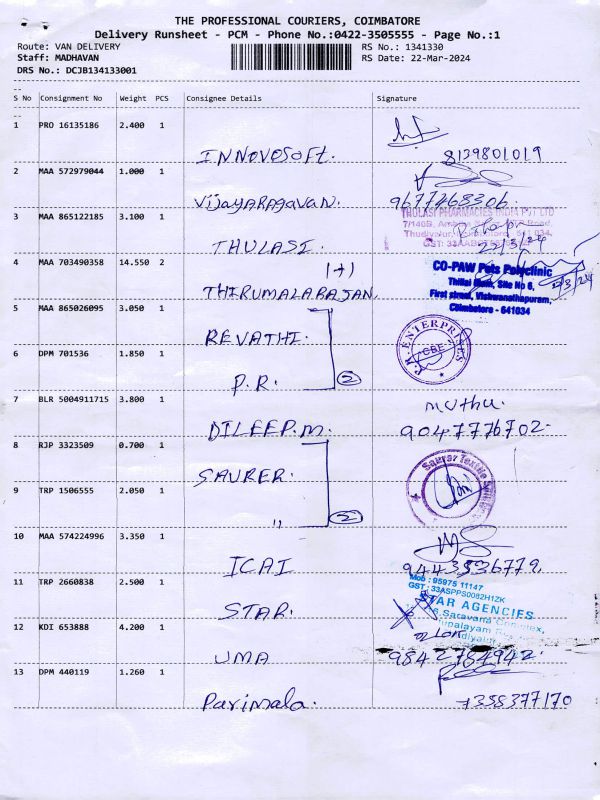 THE PROFESSIONAL COURIERS, COIMBATORE
Delivery Runsheet - PCM - Phone No.:0422-3505555 - Page No.:1
Route: VAN DELIVERY RS No.: 1341330
Staff: MADHAVAN RS Date: 22-Mar-2024
DRS No.: DCJB134133001
S No Consignment No Weight PCS Consignee Details Signature
1 PRO 16135186 2.400 1
INNOVOSOFT. 8139801019
2 MAA 572979044 1.000 1
VIJAYARAGAVAN. 9677468306
3 MAA 865122185 3.100 1
THULASI PHARMACIES INDIA PVT LTD
THULASI.
4 MAA 703490358 14.550 2
(+)
THIRUMALARAJAN
CO-PAW Pets Polyclinic
Thillai Illam, Site No 6,
First street, Vishwanathapuram,
Coimbatore - 641034
5 MAA 865026095 3.050 1
REVATHI.
6 DPM 701536 1.850 1
P.R. 2
P.R. ENTERPRISES
CBE
7 BLR 5004911715 3.800 1
muthu.
DILEEP.M. 9047776702.
8 RJP 3323509 0.700 1
SAURER.
Saurer Textile
9 TRP 1506555 2.050 1
" 2
10 MAA 574224996 3.350 1
ICAI 9443536779.
11 TRP 2660838 2.500 1
Mob : 95975 11147
GST : 33ASPPS0082H1ZK
STAR AGENCIES
STAR.
12 KDI 653888 4.200 1
UMA 9842784942.
13 DPM 440119 1.260 1
Parimala. 7358377170